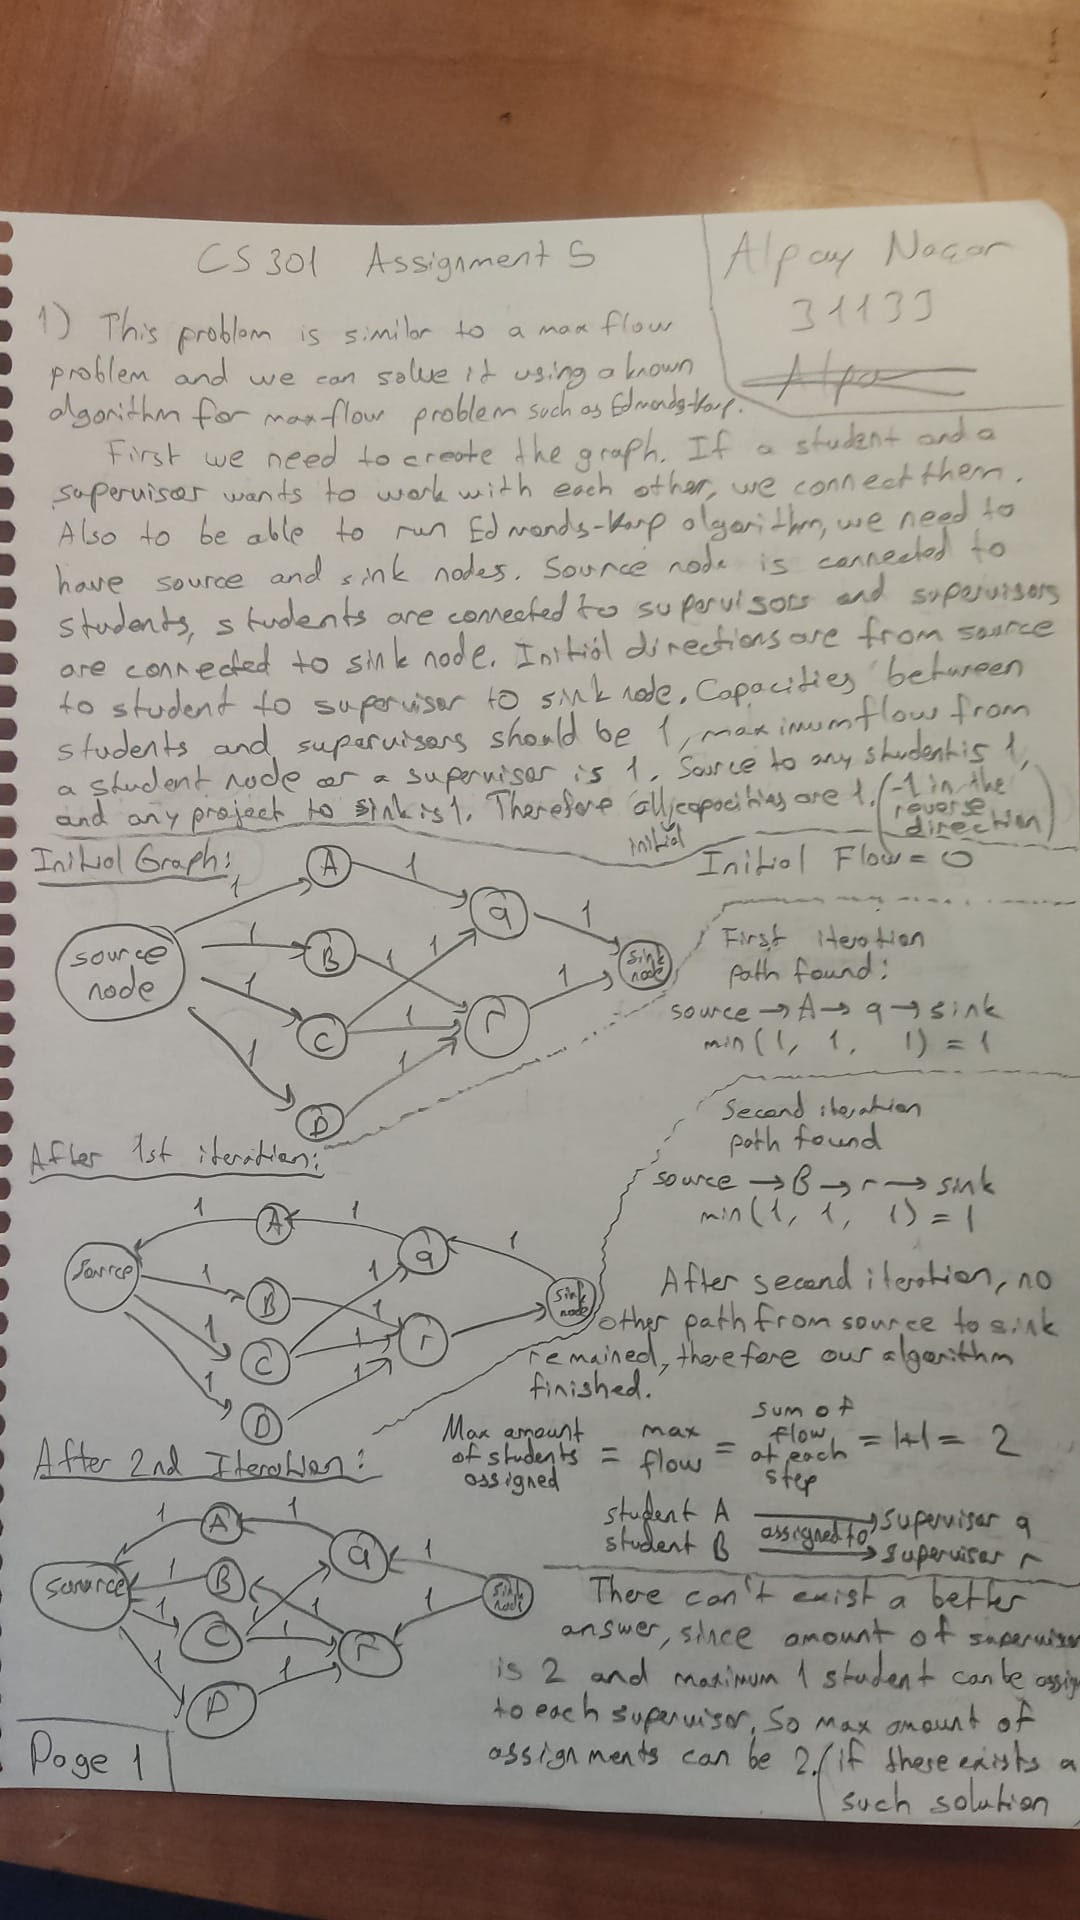 CS 301 Assignment 5
Alpay Nacar
31133
Alpa
1) This problem is similar to a max flow
problem and we can solve it using a known
algorithm for maxflow problem such as Edmonds-Karp.
First we need to create the graph. If a student and a
supervisor wants to work with each other, we connect them.
Also to be able to run Edmonds-Karp algorithm, we need to
have source and sink nodes. Source node is connected to
students, students are connected to supervisors and supervisors
are connected to sink node. Initial directions are from source
to student to supervisor to sink node. Capacities between
students and supervisors should be 1, maximum flow from
a student node or a supervisor is 1. Source to any student is 1,
and any project to sink is 1. Therefore all capacities are 1. (-1 in the
reverse
direction)
initial
Initial Graph:
Initial Flow = 0
source
node
1
1
1
1
A
B
C
D
1
1
1
1
1
q
r
1
1
sink
node
First iteration
path found:
source → A → q → sink
min(1, 1, 1) = 1
After 1st iteration:
source
1
1
1
1
A
B
C
D
1
1
1
1
1
q
r
1
sink
node
Second iteration
path found
source → B → r → sink
min(1, 1, 1) = 1
After second iteration, no
other path from source to sink
remained, therefore our algorithm
finished.
Max amount
of students
assigned
=
max
flow
=
sum of
flow
at each
step
= 1+1 = 2
student A → supervisor q
assigned to
student B → supervisor r
After 2nd Iteration:
source
1
1
1
1
A
B
C
D
1
1
1
1
1
q
r
1
1
sink
node
There can't exist a better
answer, since amount of supervisor
is 2 and maximum 1 student can be assig
to each supervisor. So max amount of
assignments can be 2. (if there exists a
such solution
Page 1